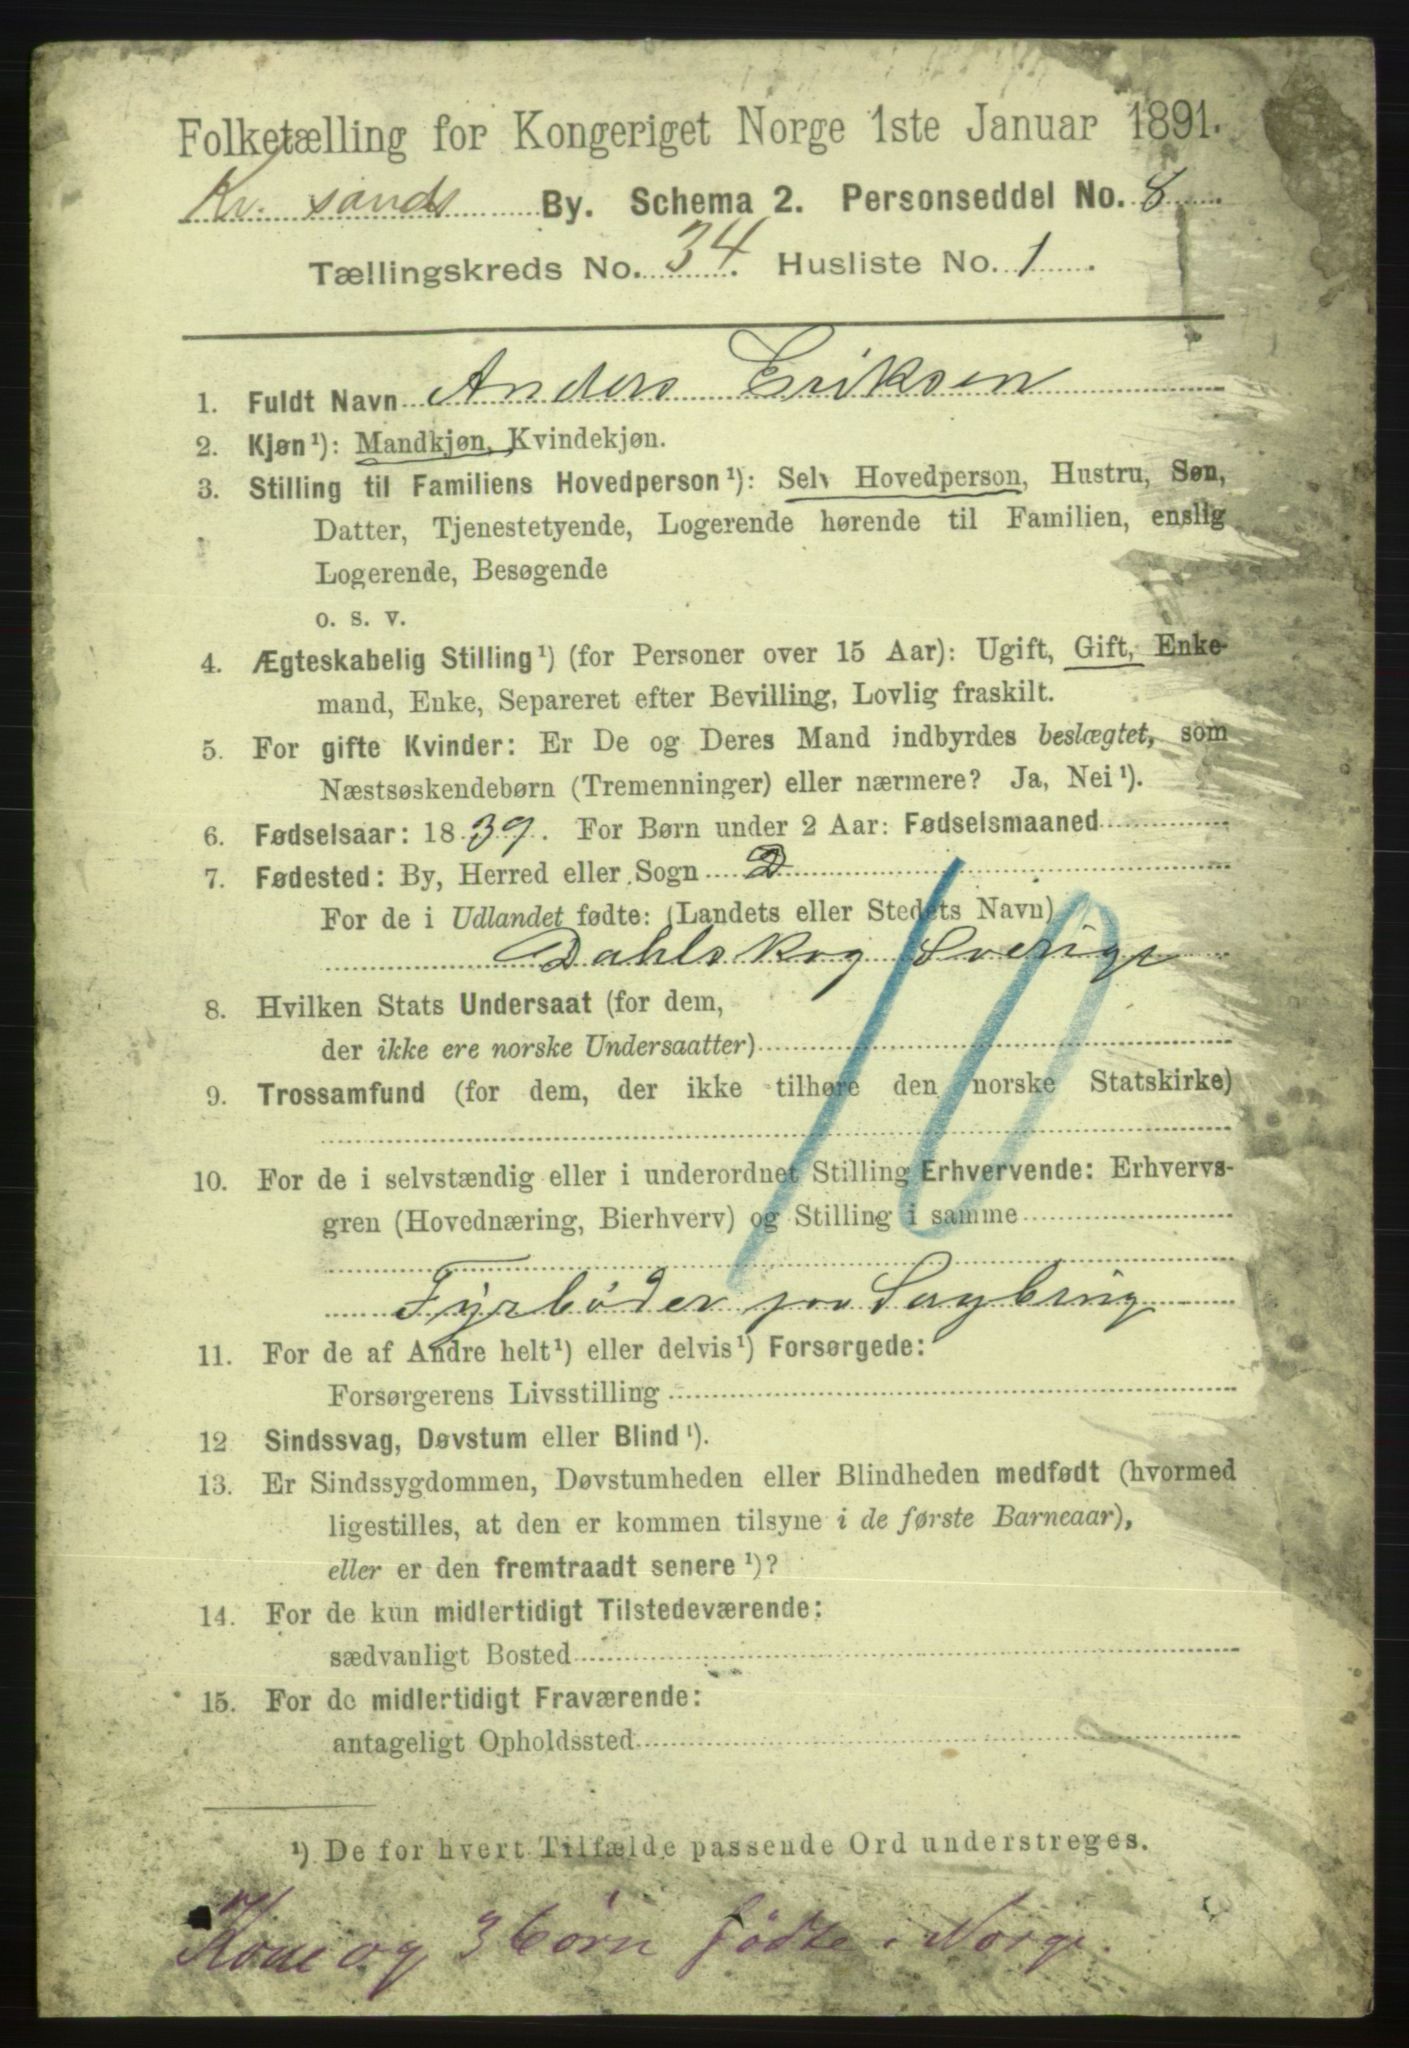 Folketælling for Kongeriget Norge 1ste Januar 1891.
Kr. sands By. Schema 2. Personseddel No. 8
Tællingskreds No. 34. Husliste No. 1.
1. Fuldt Navn Anders Eriksen
2. Kjøn¹): Mandkjøn, Kvindekjøn.
3. Stilling til Familiens Hovedperson¹): Selv Hovedperson, Hustru, Søn,
Datter, Tjenestetyende, Logerende hørende til Familien, enslig
Logerende, Besøgende
o. s. v.
4. Ægteskabelig Stilling¹) (for Personer over 15 Aar): Ugift, Gift, Enke-
mand, Enke, Separeret efter Bevilling, Lovlig fraskilt.
5. For gifte Kvinder: Er De og Deres Mand indbyrdes beslægtet, som
Næstsøskendebørn (Tremenninger) eller nærmere? Ja, Nei¹).
6. Fødselsaar: 1839. For Børn under 2 Aar: Fødselsmaaned
7. Fødested: By, Herred eller Sogn D
For de i Udlandet fødte: (Landets eller Stedets Navn)
Dahlskog Sverige
10
8. Hvilken Stats Undersaat (for dem,
der ikke ere norske Undersaatter)
9. Trossamfund (for dem, der ikke tilhøre den norske Statskirke)
10. For de i selvstændig eller i underordnet Stilling Erhvervende: Erhvervs-
gren (Hovednæring, Bierhverv) og Stilling i samme
Fyrbøder paa
11. For de af Andre helt¹) eller delvis¹) Forsørgede:
Forsørgerens Livsstilling
12 Sindssvag, Døvstum eller Blind¹).
13. Er Sindssygdommen, Døvstumheden eller Blindheden medfødt (hvormed
ligestilles, at den er kommen tilsyne i de første Barneaar),
eller er den fremtraadt senere¹)?
14. For de kun midlertidigt Tilstedeværende:
sædvanligt Bosted
15. For de midlertidigt Fraværende:
antageligt Opholdssted
¹) De for hvert Tilfælde passende Ord understreges.
Kone og 3 børn fødte i Norge.